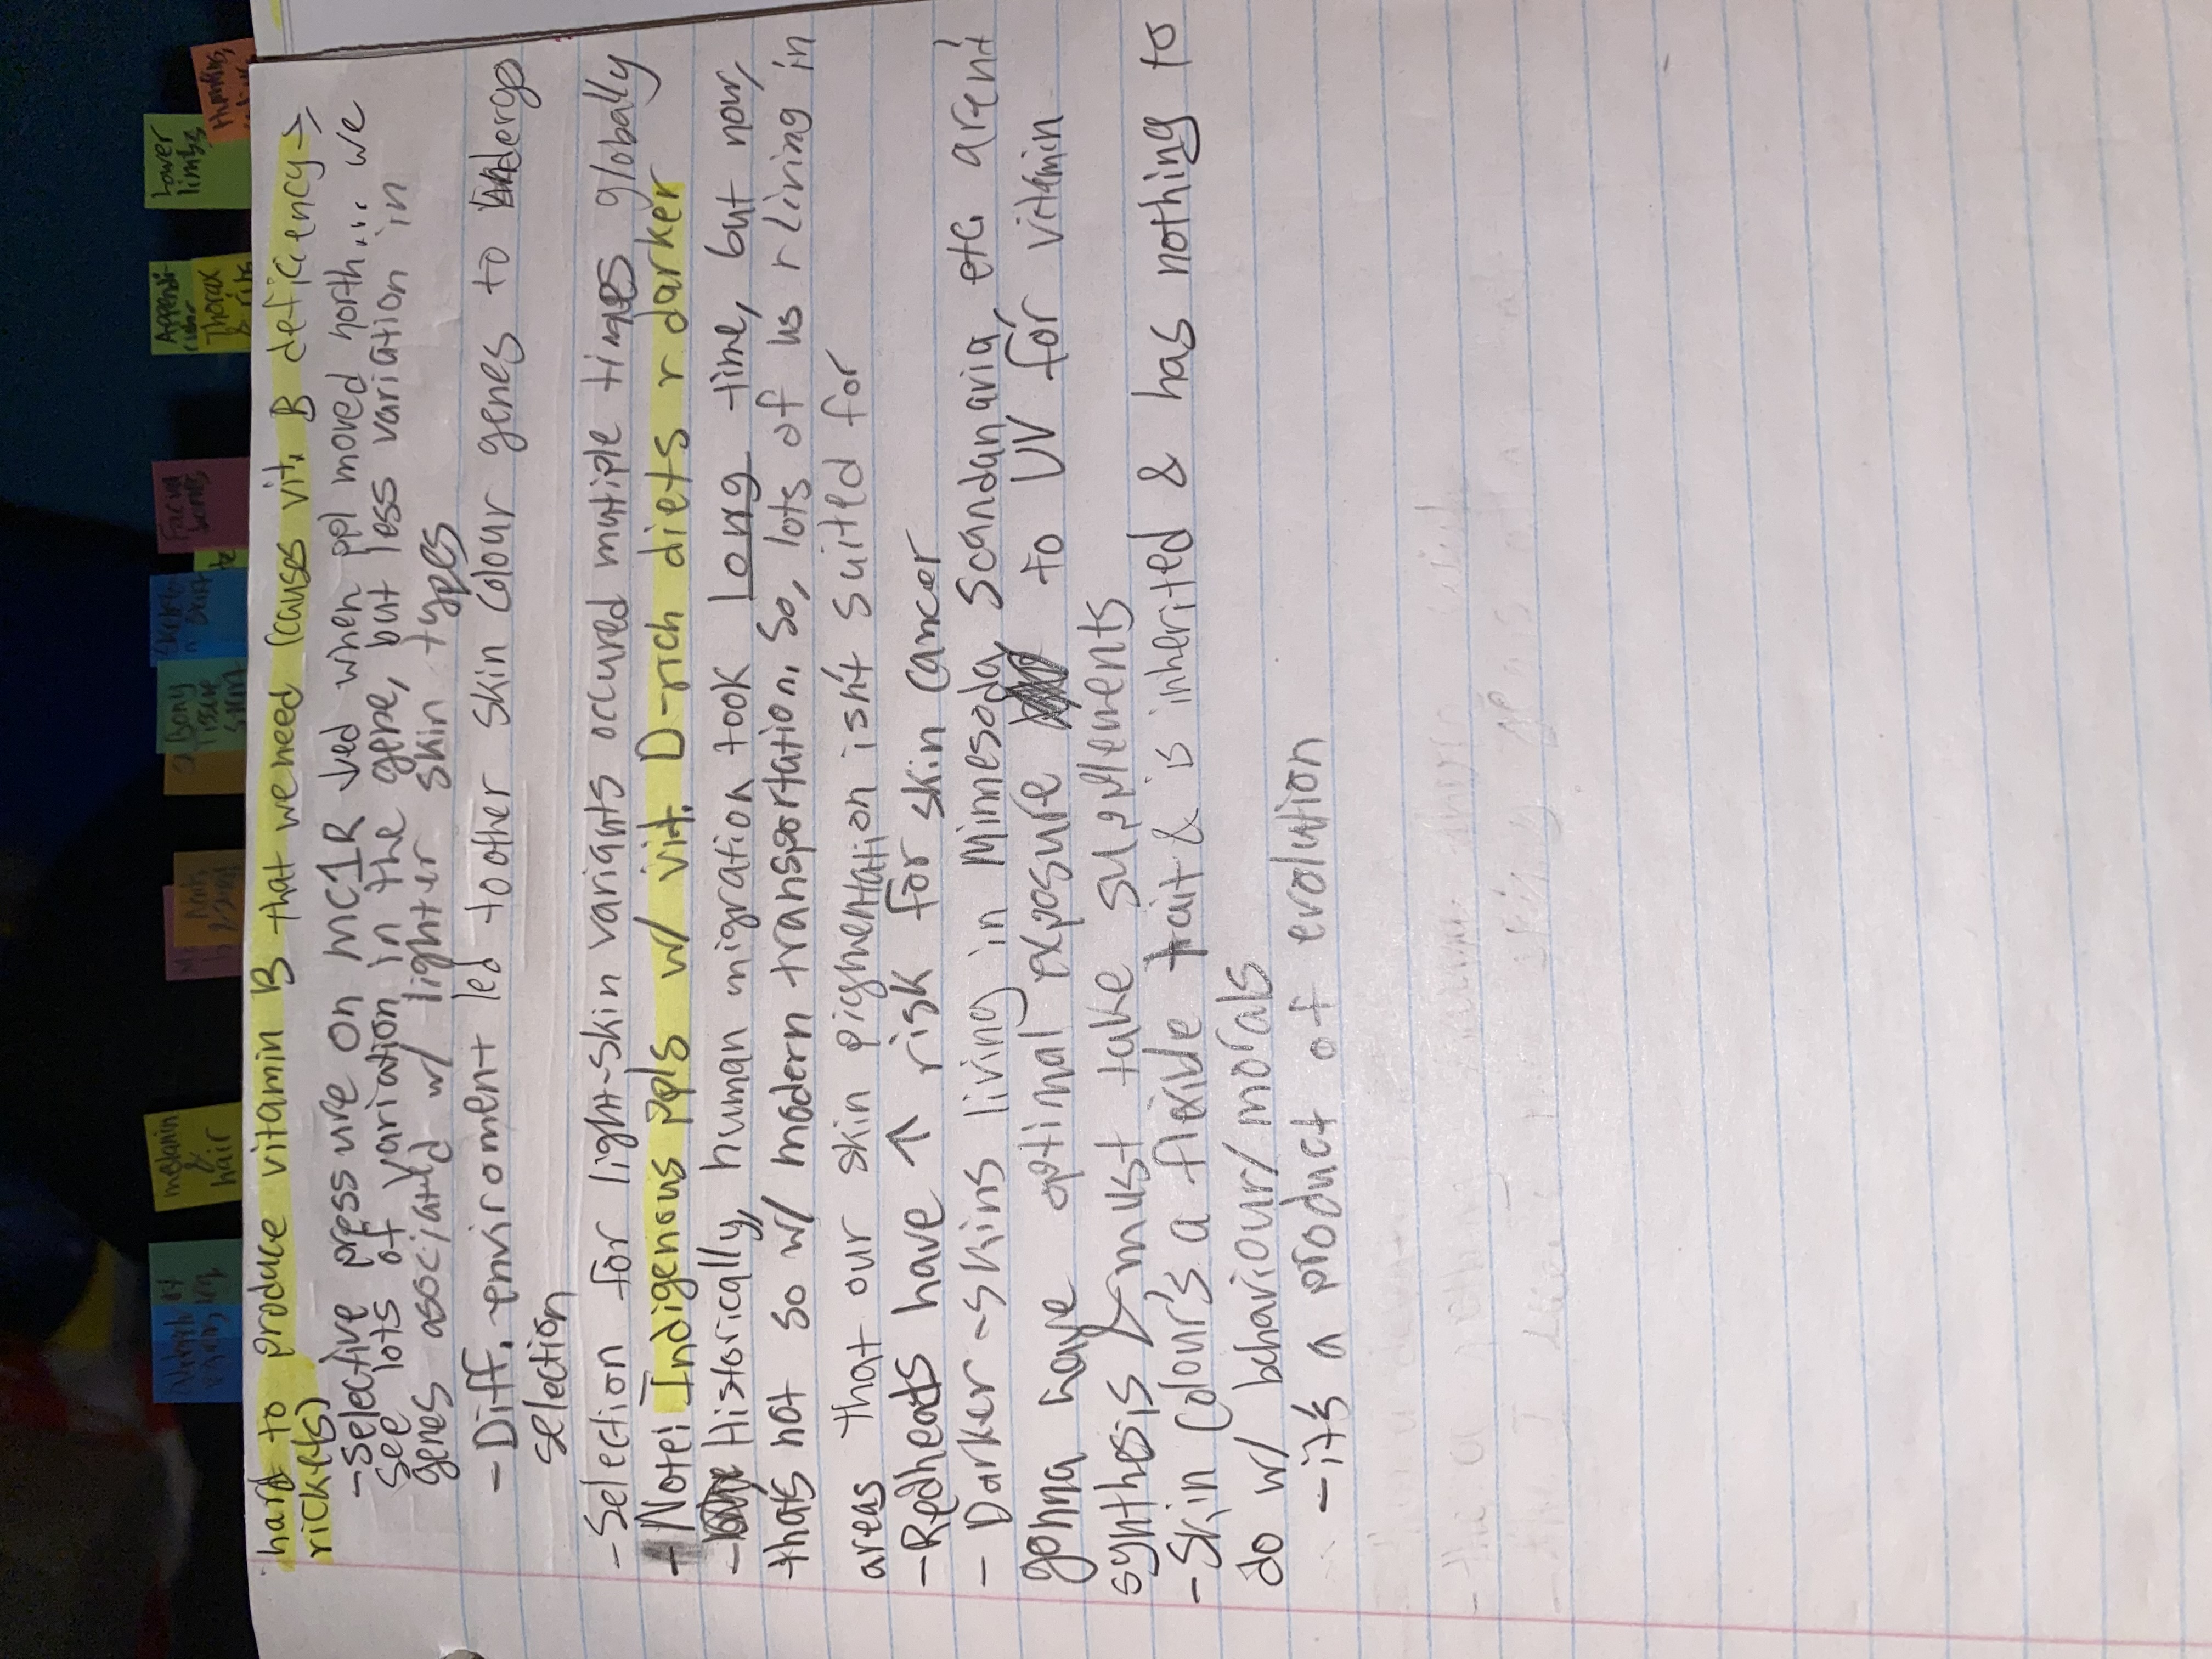 hard to produce vitamin B that we need (causes vit. B deficiency →
rickets)
-selective pressure on MC1R ↓ed when ppl moved north... we
see lots of variation in the gene, but less variation in
genes associated w/ lighter skin types
-Diff. enviroment led to other skin colour genes to undergo
selection
-Selection for light-skin variants occured mutiple times globally
-Note: Indigenous ppls w/ vit. D-rich diets r darker
-Historically, human migration took long time, but now,
that's not so w/ modern transportation. So, lots of us r living in
areas that our skin pigmentation isn't suited for
-Redheads have ↑ risk for skin cancer
- Darker-skins living in Minnesoda, Scandanavia, etc. aren't
gonna have optimal exposure to UV for vitamin
synthesis & must take supplements
-Skin colour's a flexible trait & is inherited & has nothing to
do w/ behaviour/morals
-it's a product of evolution
Lower
limbs
Thorax
& ribs
Facial
bones
Bony
Tissue
melanin
&
hair